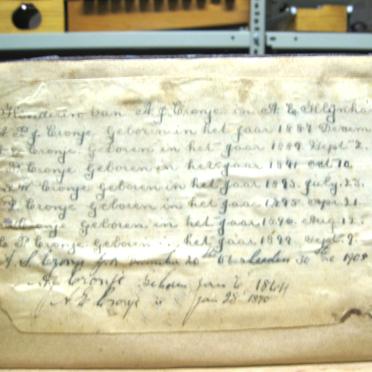 Kinderen van A J Cronje en A E Kleynhans
P J Cronje Geboren in het Jaar 1887 Decem
Cronje Geboren in het Jaar 1889 Sept 2
Cronje Geboren in het Jaar 1891 Oct 10
Cronje Geboren in het Jaar 1893 July 23
Cronje Geboren in het Jaar 1895 Apr 21
Cronje Geboren in het Jaar 1896 Aug 12
P Cronje Geboren in het Jaar 1899 Sept 9
A S Cronje 20 Overleeden 30 1908
A J Cronje Geboren Jan 6 1864
A E Cronje Jan 28 1870